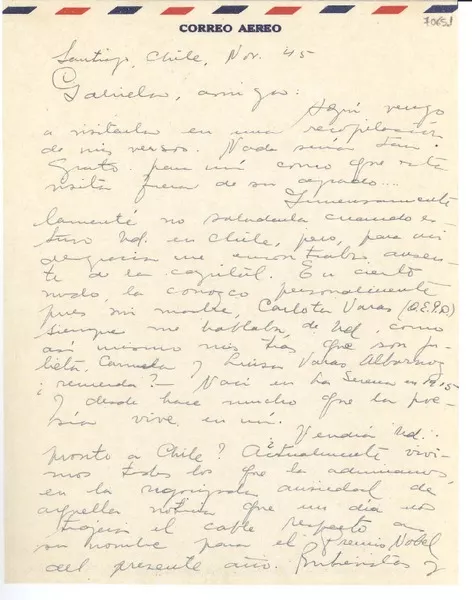 CORREO AEREO
Santiago, Chile, Nov. 45
Gabriela, amiga:
Aquí vengo
a visitarla en una recopilación
de mis versos. Nada sería tan
grato para mí como que esta
visita fuera de su agrado....
Inmensamente
lamenté no saludarla cuando es-
tuvo Ud. en Chile, pero, para mi
desgracia me encontraba ausen-
te de la capital. En cierto
modo, la conozco personalmente
pues mi madre, Carlota Varas (Q.E.P.D)
siempre me hablaba de Ud, como
así mismo mis tías que son Ju-
lieta, Carmela y Luisa Varas Albornoz
¿recuerda? — Nací en La Serena en 1915
y desde hace mucho que la poe-
sía vive en mí.
¿Vendrá Ud.
pronto a Chile? Actualmente vivi-
mos todos los que la admiramos,
en la regocijada ansiedad de
aquella noticia que un día nos
trajera el cable respecto a
su nombre para el Premio Nobel
del presente año. Entrevistas y